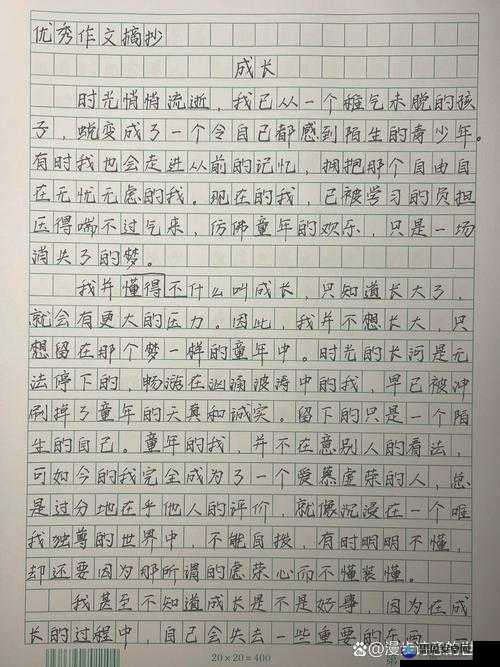 优秀作文摘抄
成长
时光悄悄流逝，我已从一个稚气未脱的孩
子，蜕变成了一个令自己都感到陌生的青少年。
有时我也会走进从前的记忆，拥抱那个自由自
在无忧无虑的我。现在的我，已被学习的负担
压得喘不过气来，仿佛童年的欢乐，只是一场
消失了的梦。
我并懂得不什么叫成长，只知道长大了，
就会有更大的压力。因此，我并不想长大，只
想留在那个梦一样的童年中。时光的长河是无
法停下的，畅游在汹涌波涛中的我，早已被冲
刷掉了童年的天真和诚实。留下的只是一个陌
生的自己。童年的我，并不在意别人的看法，
可如今的我完全成为了一个爱慕虚荣的人，总
是过分地在乎他人的评价，就像沉浸在一个唯
我独尊的世界中，不能自拔，有时明明不懂，
却还要因为那所谓的虚荣心而不懂装懂。
我甚至不知道成长是不是好事，因为在成
长的过程中，自己会失去一些重要的东西
20×20=400